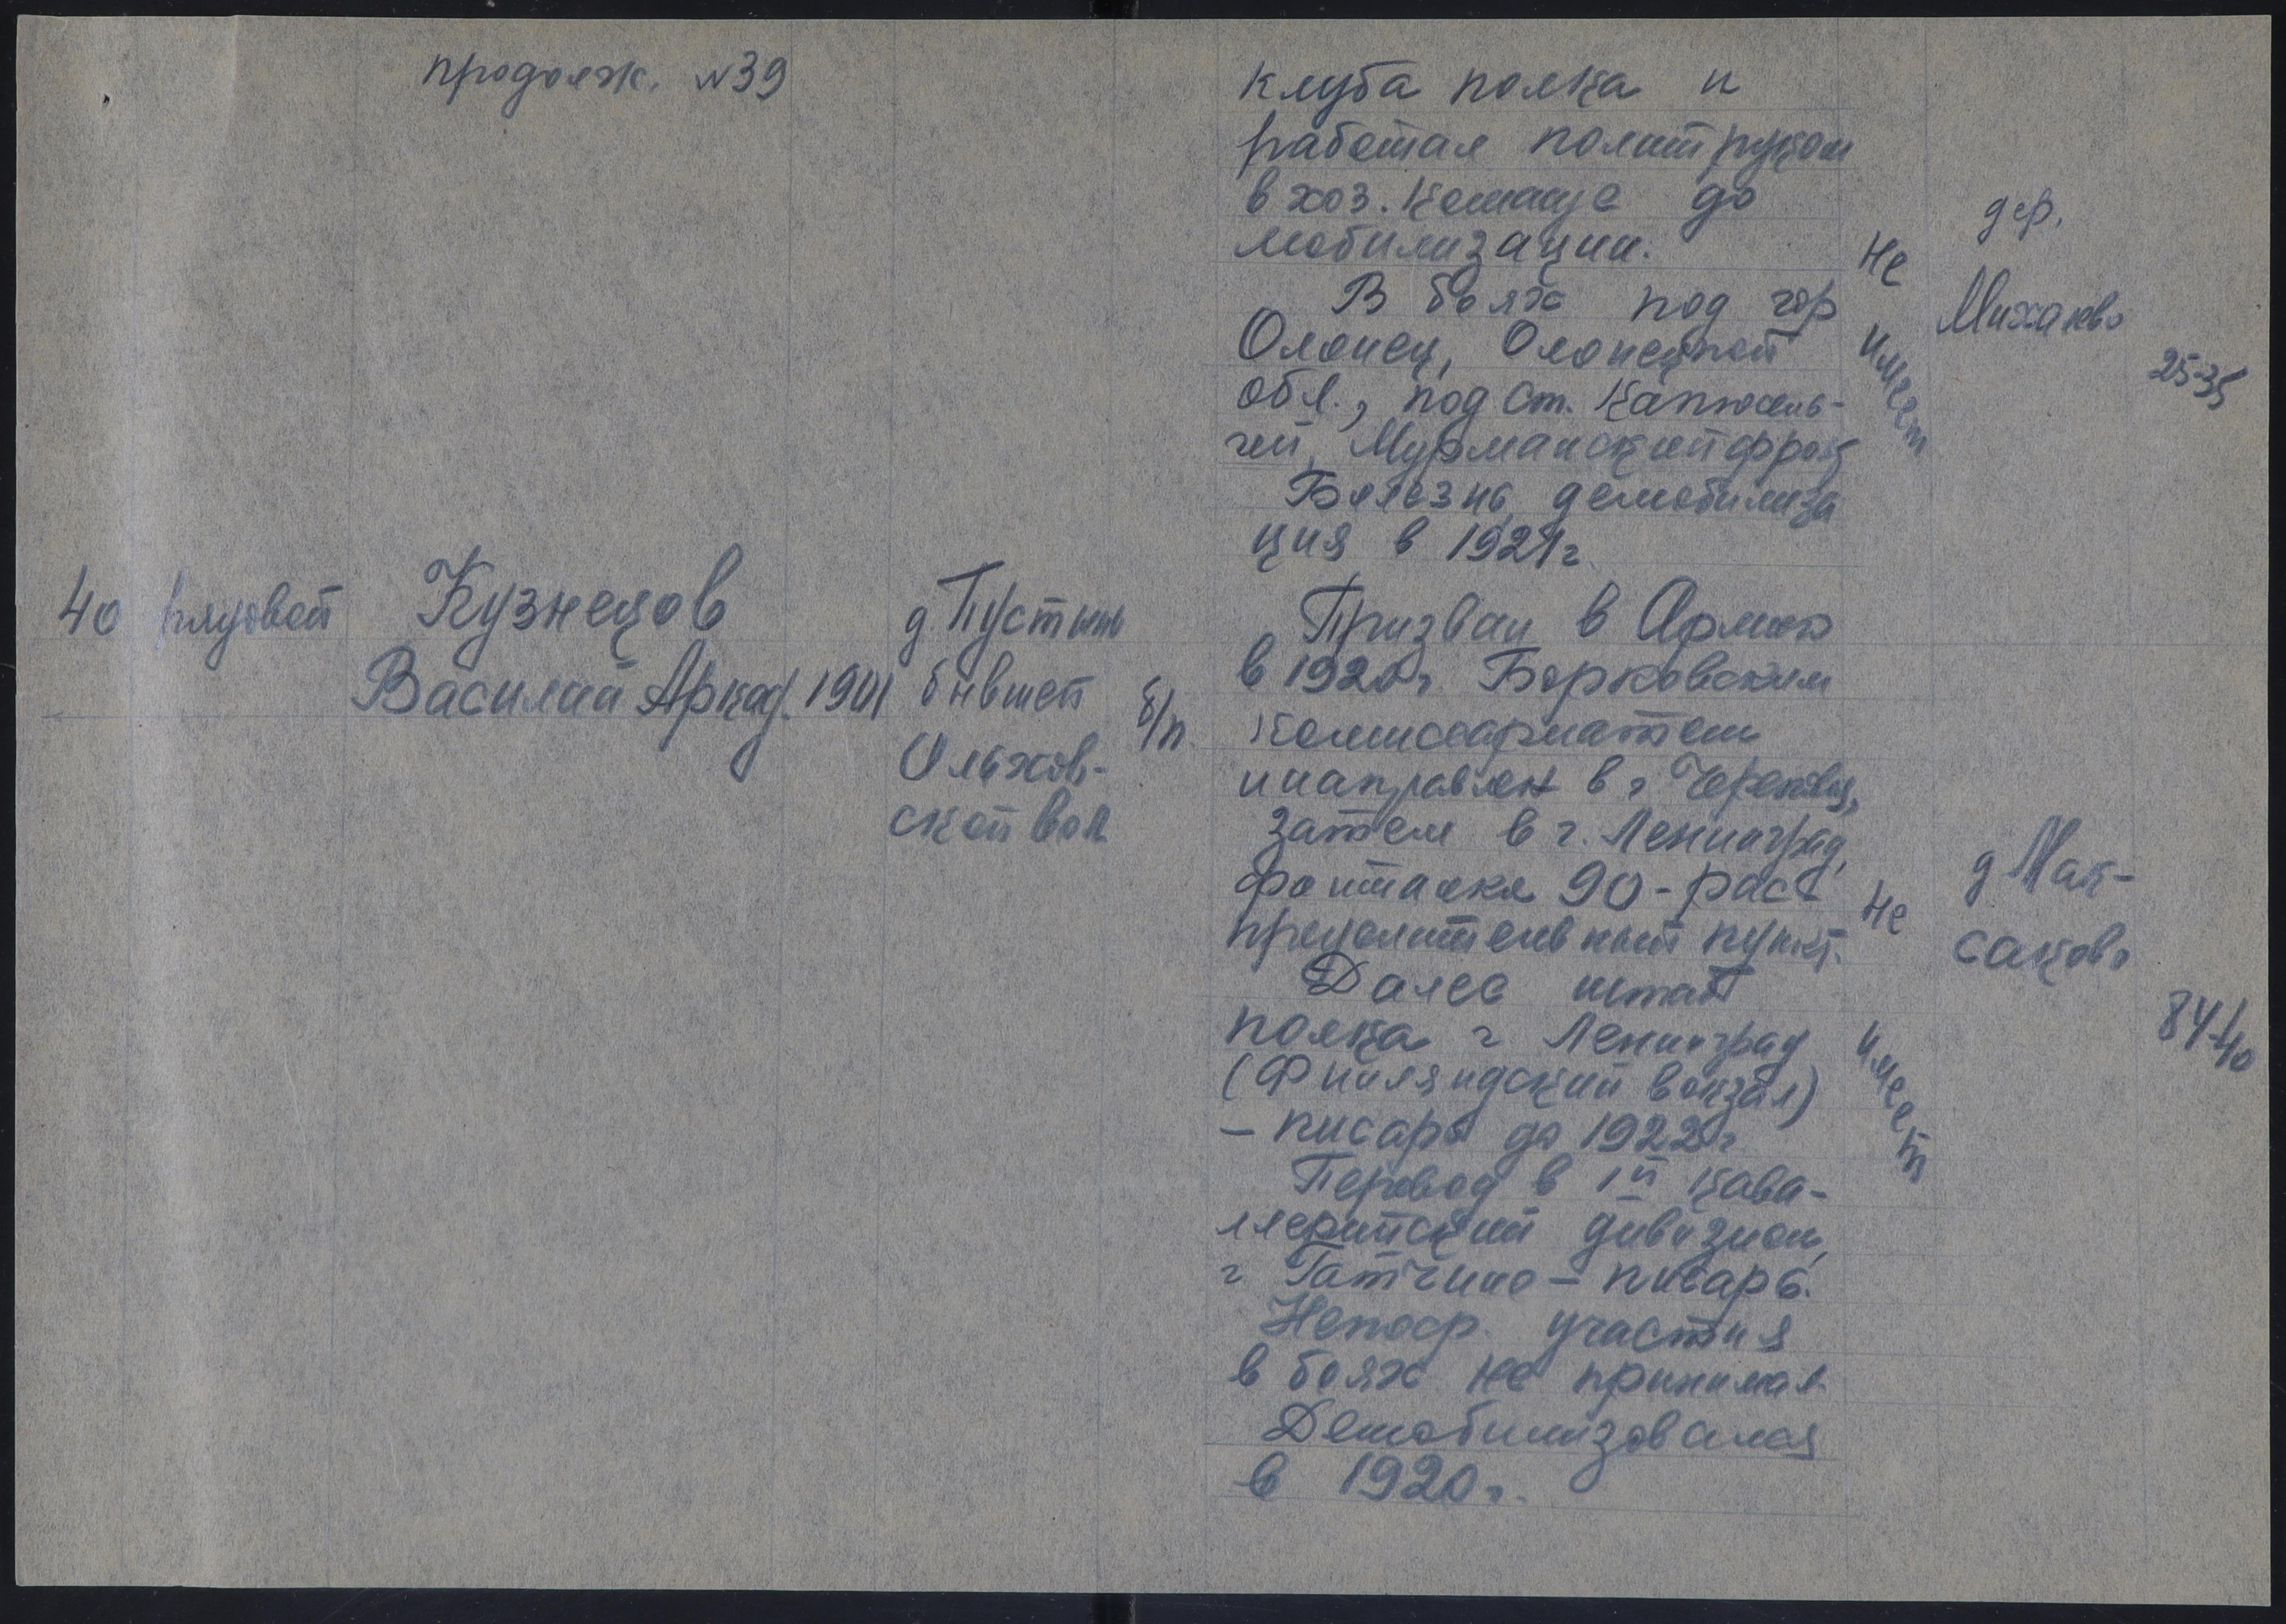 продолж. №39
клуба полка и
работал политруком
в хоз. команде до
мобилизации.
В боях под гор
Олонец, Олонецкой
обл., под ст. Капюсель-
гей, Мурманский фрон
Болезнь, демобилиза
ция в 1921г
не имеет
дер.
Михалево
25-35
40 рядовой Кузнецов
Василий Аркад. 1901
д. Пустынь
бывшей
Ольхов-
ской вол
б/п
Призван в Армию
в 1920г. Борковским
комиссариатом
и направлен в г Череповец,
затем в г. Ленинград,
фонтанка 90 - рас
пределительный пункт.
Далее штаб
полка г Ленинград
(Финляндский вокзал)
- писарь до 1922г
Перевод в 1й кава-
ллерийский дивизион,
г Гатчино - писарь.
Непоср. участия
в боях не принимал
Демобилизовался
в 1920г.
не имеет
д Мак-
саково
84-40